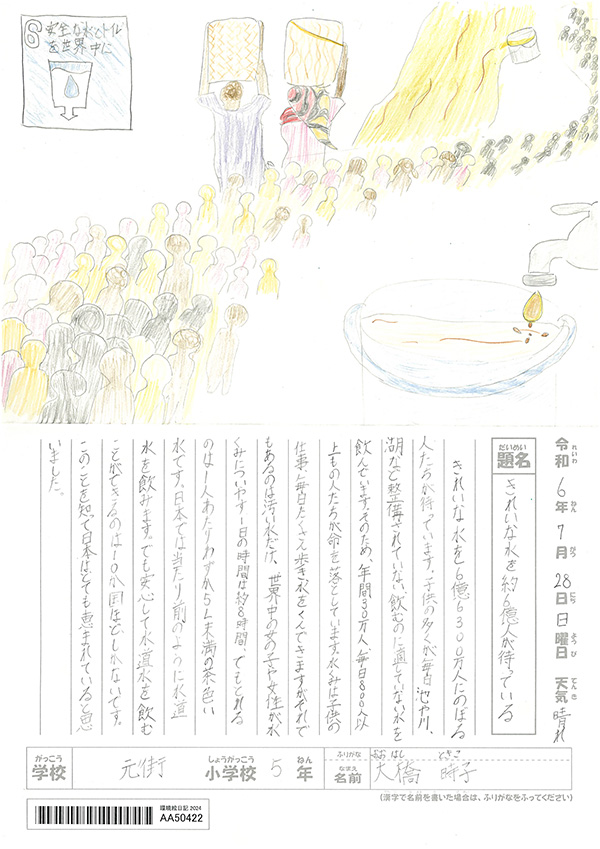 6 安全な水とトイレ
を世界中に
令和6年7月28日日曜日 天気 晴れ
れいわ ねん がつ にち ようび てんき
だいめい
題名
きれいな水を約6億人が待っている
きれいな水を6億6300万人にのぼる
人たちが待っています。子供の多くが毎日池や川、
湖など整備されていない、飲むのに適していない水を
飲んでいます。そのため、年間30万人、毎日800人以
上もの人たちが命を落としています。水くみは子供の
仕事、毎日たくさん歩き水をくんできますがそれで
もあるのは汚い水だけ、世界中の女の子や女性が水
くみについやす1日の時間は約8時間、でもとれる
のは1人あたりわずか5L未満の茶色い
水です。日本では当たり前のように水道
水を飲みます。でも安心して水道水を飲む
ことができるのは10か国ほどしかないです。
このことを知って日本はとても恵まれていると思
いました。
がっこう
学校
元街
しょうがっこう
小学校
5
ねん
年
ふりがな
おおはし ときこ
なまえ
名前
大橋 時子
(漢字で名前を書いた場合は、ふりがなをふってください)
環境絵日記 2024
AA50422